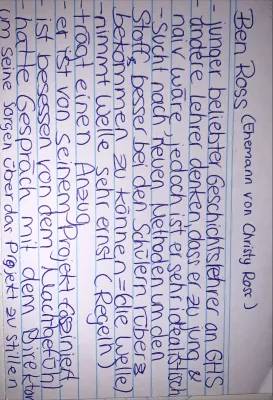 Ben Ross (Ehemann von Christy Ross)
- junger beliebter Geschichtslehrer an GHS
- andere Lehrer denken, dass er zu jung &
naiv wäre, jedoch ist er sehr idealistisch
- sucht nach neuen Methoden um den
Stoff besser bei den Schülern rüber
bekommen zu können = die Welle)
- nimmt Welle sehr ernst (Regeln)
trägt einen Anzug
- er ist von seinem Projekt fasziniert,
ist besessen von dem
- hatte Gespräch mit dem Direktor
um seine Sorgen über das Projekt zu stillen